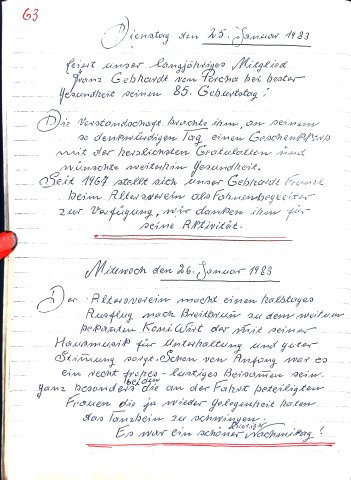 63
Dienstag den 25. Januar 1983
feiert unser langjähriges Mitglied
Franz Gebhardt von Percha bei bester
Gesundheit seinen 85. Geburtstag!
Die Vorstandschaft brachte ihm an seinem
so denkwürdigen Tag einen Geschenkkorb
mit der herzlichsten Gratulation und
wünschte weiterhin Gesundheit.
Seit 1967 stellt sich unser Gebhardt Franzl
beim Altersverein als Fahnenbegleiter
zur Verfügung, wir danken ihm für
seine Aktivität.
Mittwoch den 26. Januar 1983
Der Altersverein macht einen halbtages
Ausflug nach Breitbrunn zu dem weitum
bekannten Wirt der mit seiner
Hausmusik für Unterhaltung und guter
Stimmung sorgt. Schon von Anfang war es
ein recht frohes-lustiges Beisamen sein.
ganz besonders die an der Fahrt beteiligten
Frauen die ja wieder gelegenheit haten
das Tanzbein zu schwingen.
Es war ein schöner Nachmittag!